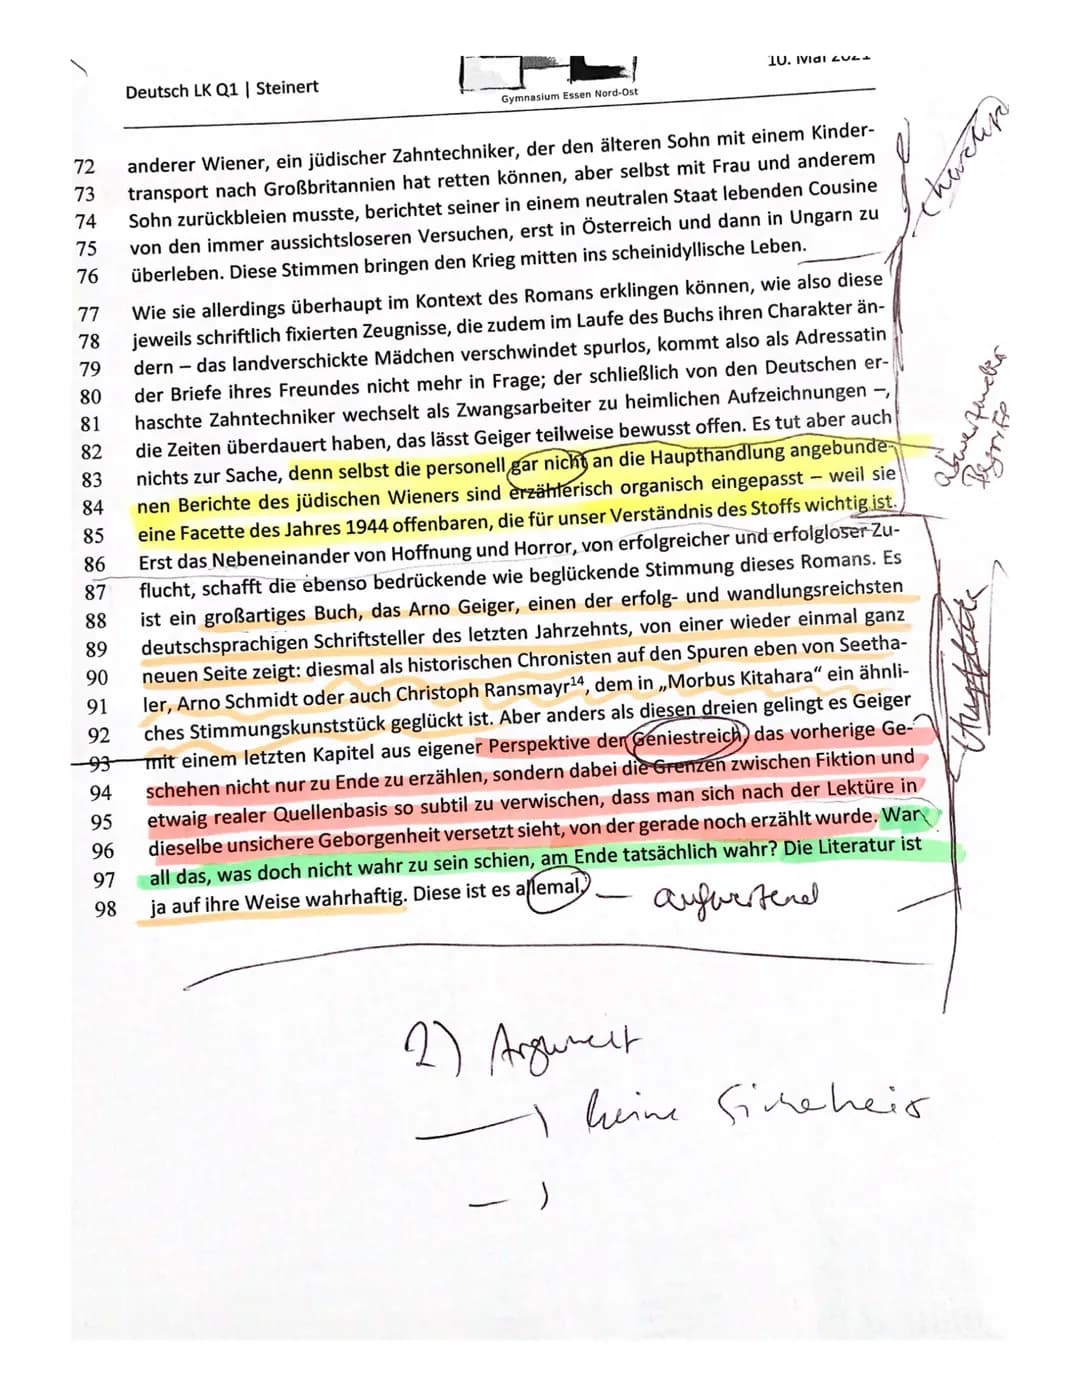 Deutsch LK Q1 | Steinert
Gymnasium Essen Nord-Ost
10. Mai 2021
72 anderer Wiener, ein jüdischer Zahntechniker, der den älteren Sohn mit einem Kinder-
73 transport nach Großbritannien hat retten können, aber selbst mit Frau und anderem
74 Sohn zurückbleien musste, berichtet seiner in einem neutralen Staat lebenden Cousine
75 von den immer aussichtsloseren Versuchen, erst in Österreich und dann in Ungarn zu
76 überleben. Diese Stimmen bringen den Krieg mitten ins scheinidyllische Leben.
77 Wie sie allerdings überhaupt im Kontext des Romans erklingen können, wie also diese
78 jeweils schriftlich fixierten Zeugnisse, die zudem im Laufe des Buchs ihren Charakter än-
79 dern – das landverschickte Mädchen verschwindet spurlos, kommt also als Adressatin
80 der Briefe ihres Freundes nicht mehr in Frage; der schließlich von den Deutschen er-
81 haschte Zahntechniker wechselt als Zwangsarbeiter zu heimlichen Aufzeichnungen –,
82 die Zeiten überdauert haben, das lässt Geiger teilweise bewusst offen. Es tut aber auch
83 nichts zur Sache, denn selbst die personell gar nicht an die Haupthandlung angebunde-
84 nen Berichte des jüdischen Wieners sind erzählerisch organisch eingepasst – weil sie
85 eine Facette des Jahres 1944 offenbaren, die für unser Verständnis des Stoffs wichtig ist.
86 Erst das Nebeneinander von Hoffnung und Horror, von erfolgreicher und erfolgloser Zu-
87 flucht, schafft die ebenso bedrückende wie beglückende Stimmung dieses Romans. Es
88 ist ein großartiges Buch, das Arno Geiger, einen der erfolg- und wandlungsreichsten
89 deutschsprachigen Schriftsteller des letzten Jahrzehnts, von einer wieder einmal ganz
90 neuen Seite zeigt: diesmal als historischen Chronisten auf den Spuren eben von Seetha-
91 ler, Arno Schmidt oder auch Christoph Ransmayr14, dem in „Morbus Kitahara“ ein ähnli-
92 ches Stimmungskunststück geglückt ist. Aber anders als diesen dreien gelingt es Geiger
93 mit einem letzten Kapitel aus eigener Perspektive der Geniestreich, das vorherige Ge-
94 schehen nicht nur zu Ende zu erzählen, sondern dabei die Grenzen zwischen Fiktion und
95 etwaig realer Quellenbasis so subtil zu verwischen, dass man sich nach der Lektüre in
96 dieselbe unsichere Geborgenheit versetzt sieht, von der gerade noch erzählt wurde. War
97 all das, was doch nicht wahr zu sein schien, am Ende tatsächlich wahr? Die Literatur ist
98 ja auf ihre Weise wahrhaftig. Diese ist es allemal.
– aufwertend
2) Argument
keine